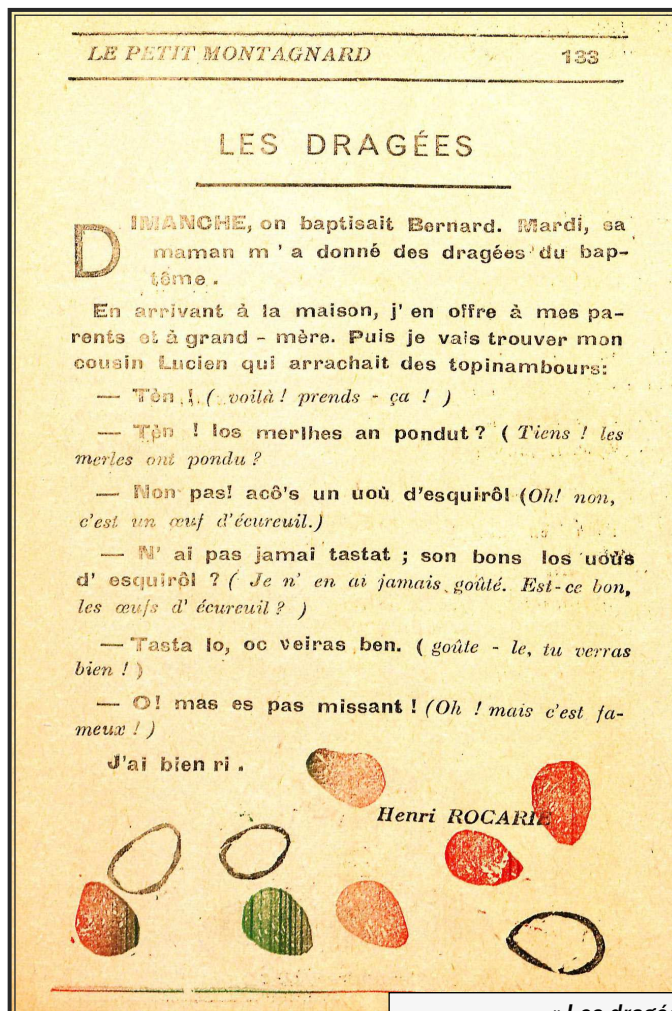 LE PETIT MONTAGNARD 133
LES DRAGÉES
DIMANCHE, on baptisait Bernard. Mardi, sa
maman m ' a donné des dragées du bap-
tême .
En arrivant à la maison, j' en offre à mes pa-
rents et à grand - mère. Puis je vais trouver mon
cousin Lucien qui arrachait des topinambours:
— Tèn ! ( voilà ! prends - ça ! )
— Tèn ! los merlhes an pondut ? ( Tiens ! les
merles ont pondu ?
— Non pas! acô's un uoù d'esquirôl (Oh! non,
c'est un œuf d'écureuil.)
— N' ai pas jamai tastat ; son bons los uoùs
d' esquirôl ? ( Je n' en ai jamais goûté. Est-ce bon,
les œufs d' écureuil ? )
— Tasta lo, oc veiras ben. ( goûte - le, tu verras
bien ! )
— O! mas es pas missant ! (Oh ! mais c'est fa-
meux ! )
J'ai bien ri .
Henri ROCARIE
« Les dragé